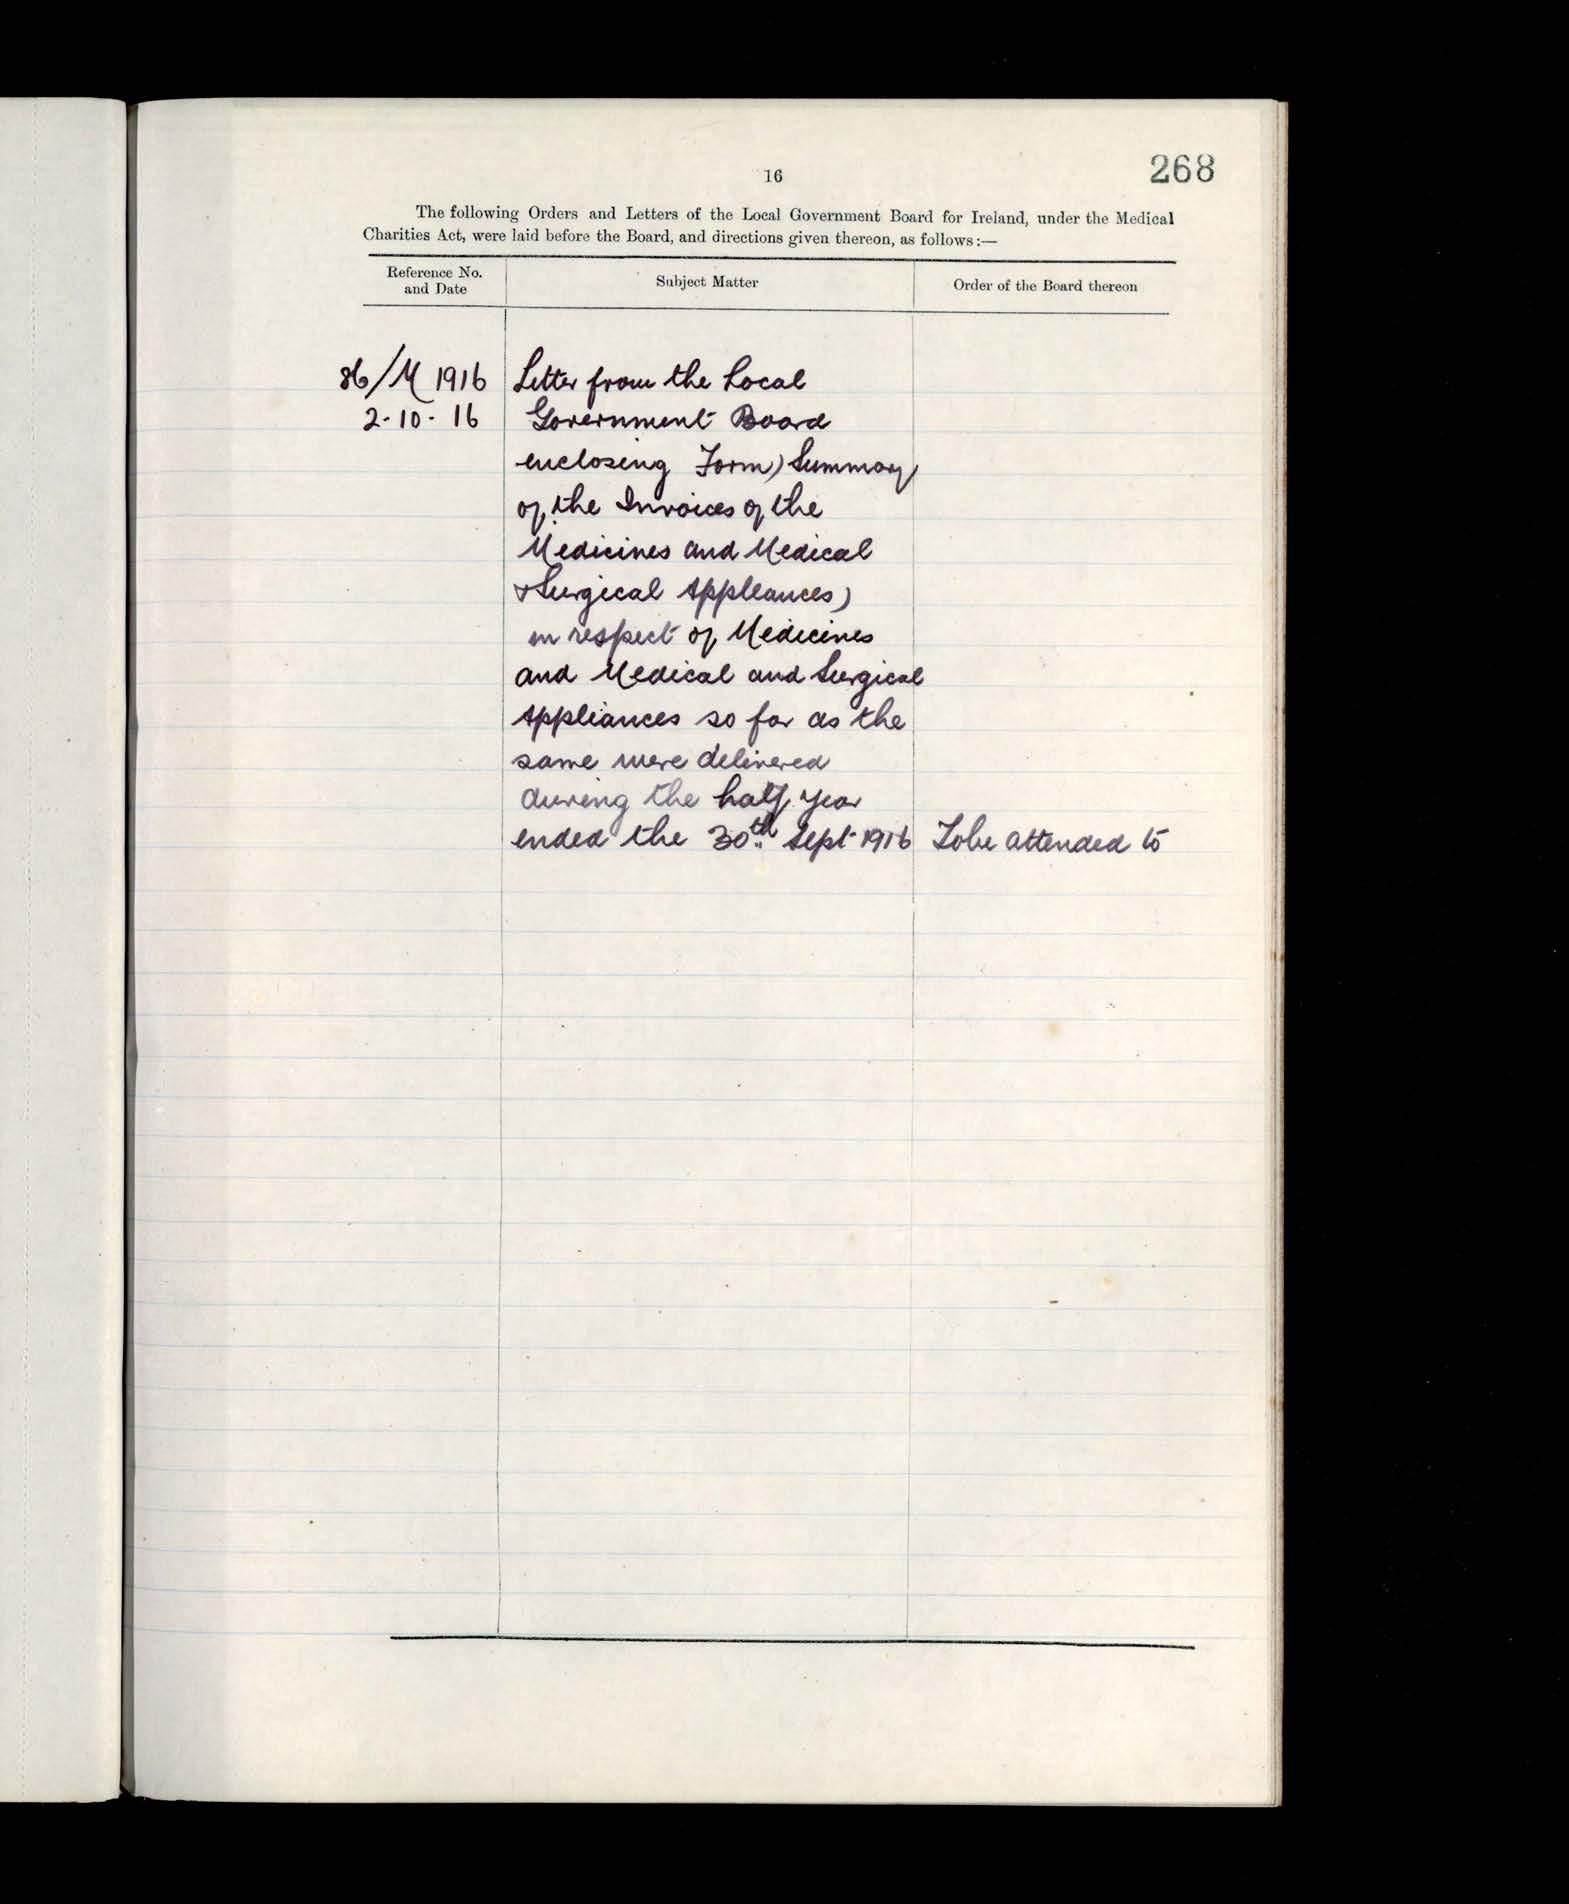 268
16
The following Orders and Letters of the Local Government Board for Ireland, under the Medical
Charities Act, were laid before the Board, and directions given thereon, as follows:—
Reference No.
and Date
Subject Matter
Order of the Board thereon
86/M 1916 Letter from the Local
2-10-16 Government Board
enclosing Form) Summary
of the Invoices of the
Medicines and Medical
& Surgical Appliances)
in respect of Medicines
and Medical and Surgical
Appliances so far as the
same were delivered
during the half year
ended the 30th Sept 1916 To be attended to